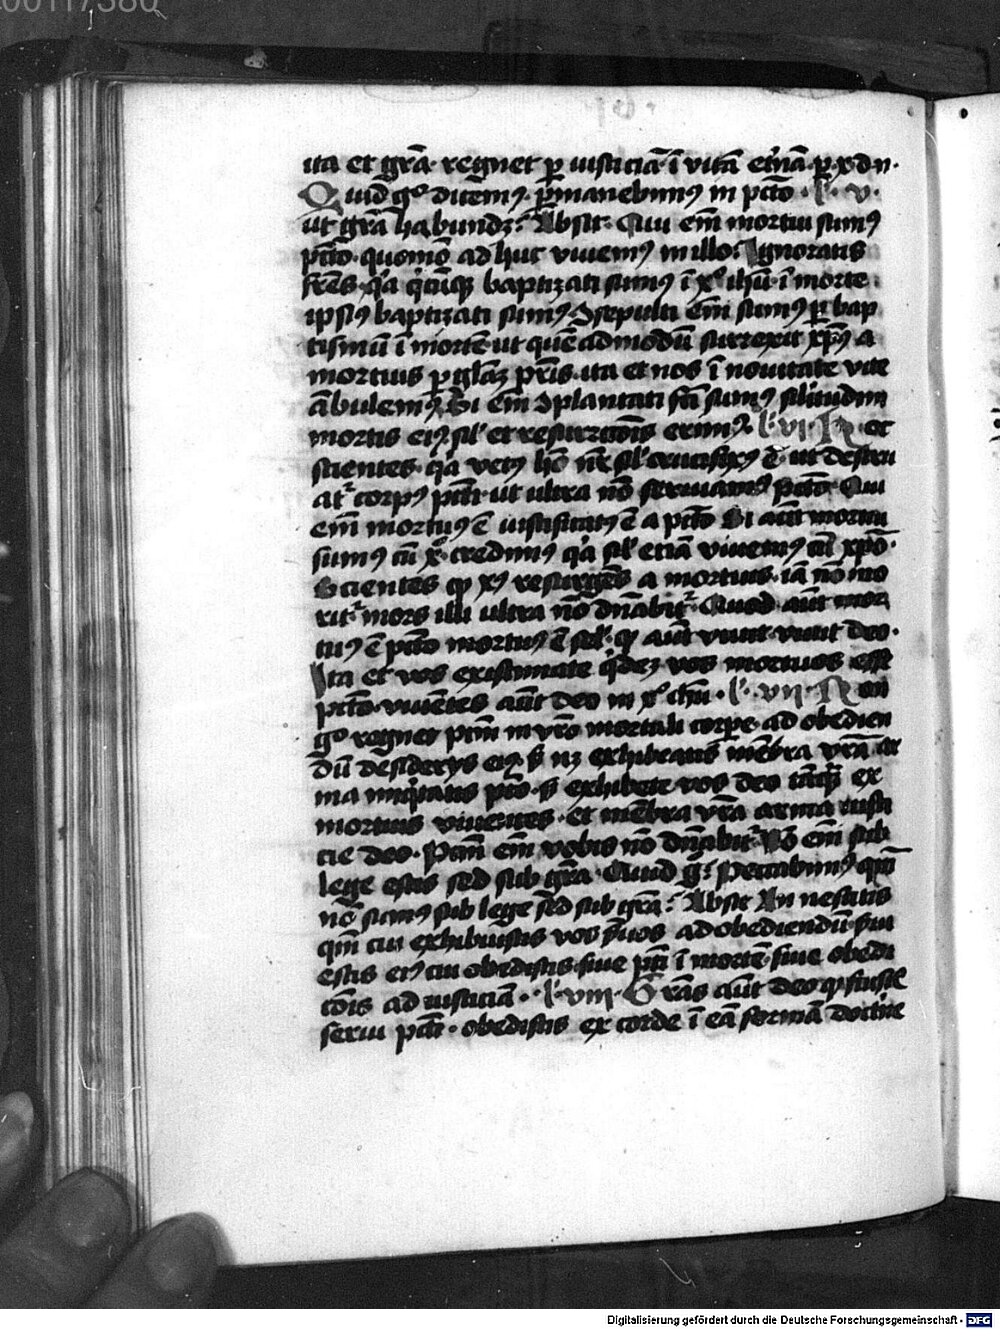 00117380
ita et grã· regnet ꝑ iusticiã· ĩ vitã et̃nã ꝑ x̃ d n·
Quid gͦ dicemꝰ· ꝑmanebimꝰ in pctõ· l· v·
ut grã habundꝫ? Absit· Qui em̃ mortui sumꝰ
pctõ· quomõ adhuc viuemꝰ in illo? Ignoratis
fres̃· qꝛ qcũqꝫ baptizati sumꝰ ĩ xͦ ihũ· ĩ morte
ipsiꝰ baptizati sumꝰ Ɔsepulti em̃ sumꝰ ꝑ bap
tismũ ĩ mortẽ ut quẽadmodũ surrexit xp̃s a
mortuis ꝑ glãꝫ pr̃is· ita et nos ĩ nouitate vite
ãbulemꝰ· Si em̃ Ɔplantati fc̃i sumꝰ sil̃itudini
mortis eiꝰ· sil̃ et resurrc̃õis erimꝰ· l· vi· hoc
scientes· qꝛ vetꝰ hõ nr̃ sil̃ crucifixꝰ ẽ· ut destru
atͬ corpꝰ pcti· ut ultra nõ seruiamꝰ pctõ· Qui
em̃ mortuꝰ ẽ iustificatꝰ ẽ a pctõ Si aũt mortui
sumꝰ cũ xͦ· credimꝰ qꝛ sil̃ etiã viuemꝰ cũ xp̃õ·
Scientes qꝫ xꝰ resurgẽs a mortuis· iã nõ mo
ritͬ mors illi ultra nõ dñabitͬ· Quod aũt mor
tuꝰ ẽ pctõ mortuꝰ ẽ sel̃· qꝫ aũt viuit· viuit deo·
Ita et vos existimate qdeꝫ vos mortuos esse
pctõ· viuẽtes aũt deo in xͦ ihũ· l· vii· Non
gͦ regnet pctm̃ in vr̃o mortali corpe· ad obedien
dũ desiderijs eiꝰ· s̃ nꝫ exhibeatis mẽbra vr̃a ar
ma iniqͥtatis pctõ· s̃ exhibete vos deo tãqͣ̃ ex
mortuis viuentes· et mẽbra vr̃a arma iusti
cie deo· Pctm̃ em̃ vobis nõ dñabitͬ Nõ em̃ sub
lege estis sed sub grã· Quid gͦ? Peccabimꝰ qm̃
nõ sumꝰ sub lege sed sub grã? Absit An nescitis
qm̃ cui exhibuistis vos s̃uos ad obediendũ s̃ui
estis eiꝰ cui obedistis· siue pcti ĩ mortẽ· siue obedi
cõis ad iusticiã· l· viii· Grãs aũt deo qꝫ fuistis
serui pcti· obedistis ex corde ĩ eã formã doctͥne
Digitalisierung gefördert durch die Deutsche Forschungsgemeinschaft - DFG